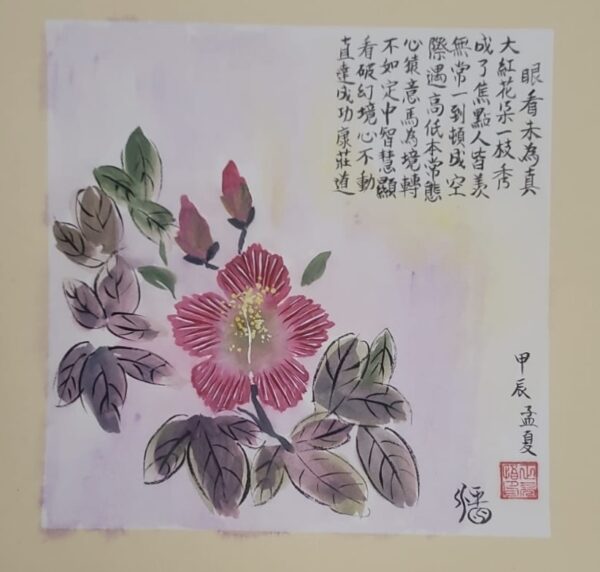 眼看未為真
大紅花朵一枝秀
成了焦點人皆羨
無常一到頓成空
際遇高低本常態
心猿意馬為境轉
不如定中智慧顯
看破幻境心不動
直達成功康莊道
甲辰孟夏